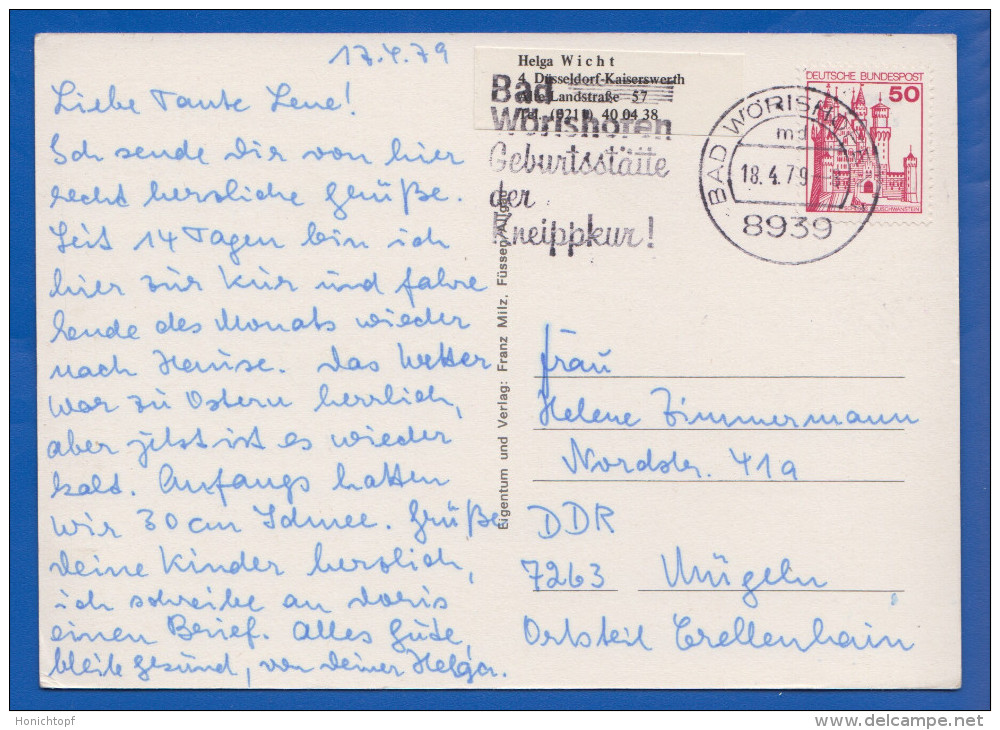 17.4.79
Liebe Tante Lene!
Ich sende dir von hier
recht herzliche Grüße.
Seit 14 Tagen bin ich
hier zur Kur und fahre
Ende des Monats wieder
nach Hause. Das Wetter
war zu Ostern herrlich,
aber jetzt ist es wieder
kalt. Anfangs hatten
wir 30 cm Schnee. Grüße
deine Kinder herzlich,
ich schreibe an Doris
einen Brief. Alles Gute,
bleibe gesund, von deiner Helga.
Eigentum und Verlag: Franz Milz, Füssen/Allgäu
Helga Wicht
4 Düsseldorf-Kaiserswerth
Alte Landstraße 57
Tel. (0211) 40 04 38
Bad
Wörishofen
Geburtsstätte
der
Kneippkur!
BAD WÖRISHOFEN
md
18.4.79
8939
DEUTSCHE BUNDESPOST
50
NEUSCHWANSTEIN
Frau
Helene Zimmermann
Nordstr. 41a
DDR
7263 Mügeln
Ortsteil Crellenhain
Honichtopf
www.delcampe.net